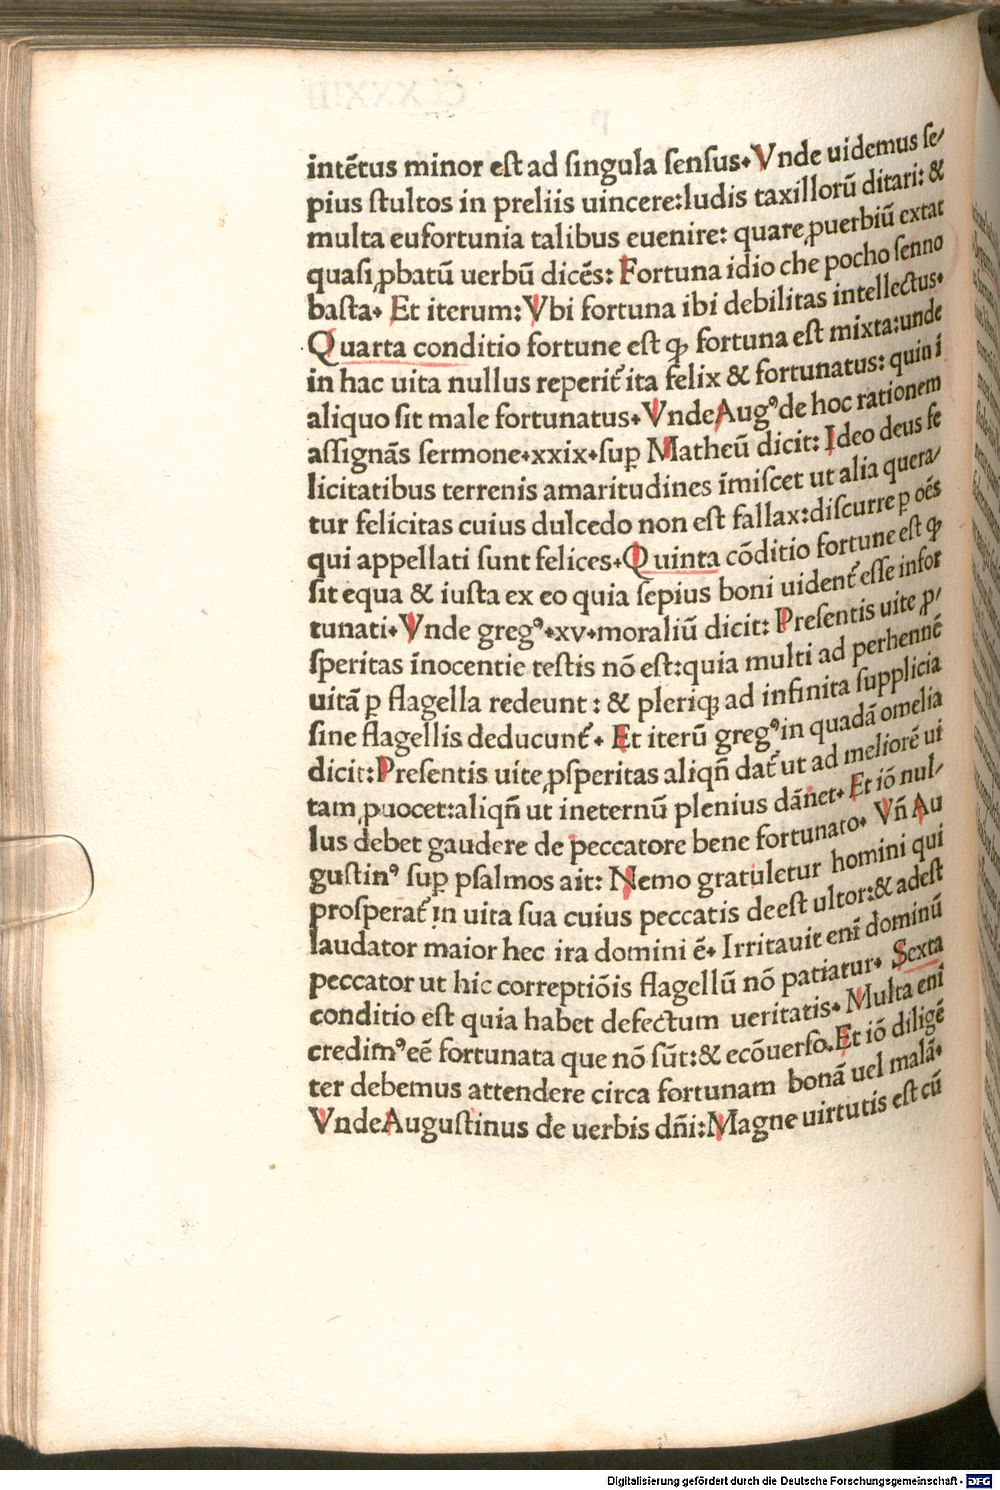 intētus minor est ad singula sensus. Vnde uidemus se/
pius stultos in preliis uincere: ludis taxillorū ditari: &
multa eufortunia talibus euenire: quare ꝓuerbiū extat
quasi ꝓbatū uerbū dicēs: Fortuna idio che pocho senno
basta. Et iterum: Vbi fortuna ibi debilitas intellectus.
Quarta conditio fortune est ꝙ fortuna est mixta: unde
in hac uita nullus reperit᷑ ita felix & fortunatus: quin ī
aliquo sit male fortunatus. Vnde Augꝰ de hoc rationem
assignās sermone.xxix.suꝑ Matheū dicit: Ideo deus fe
licitatibus terrenis amaritudines īmiscet ut alia quera/
tur felicitas cuius dulcedo non est fallax: discurre ꝑ oēs
qui appellati sunt felices. Quinta cōditio fortune est ꝙ
sit equa & iusta ex eo quia sepius boni uident᷑ esse infor
tunati. Vnde gregꝰ.xv.moraliū dicit: Presentis uite ꝓ/
speritas īnocentie testis nō est: quia multi ad perhennē
uitā ꝑ flagella redeunt: & pleriqꝫ ad infinita supplicia
sine flagellis deducunt᷑. Et iterū gregꝰ in quadā omelia
dicit: Presentis uite ꝓsperitas aliqn̄ dat᷑ ut ad meliorē ui
tam ꝓuocet: aliqn̄ ut ineternū plenius dānet. Et iō nul/
lus debet gaudere de peccatore bene fortunato. Vn̄ Au
gustinꝰ suꝑ psalmos ait: Nemo gratuletur homini qui
prosperat᷑ in uita sua cuius peccatis deest ultor: & adest
laudator maior hec ira domini ē. Irritauit enī dominū
peccator ut hic correptiōis flagellū nō patiatur. Sexta
conditio est quia habet defectum ueritatis. Multa enī
credimꝰ eē fortunata que nō sūt: & ecōuerso. Et iō diligē
ter debemus attendere circa fortunam bonā uel malā.
Vnde Augustinus de uerbis dn̄i: Magne uirtutis est cū
Digitalisierung gefördert durch die Deutsche Forschungsgemeinschaft - DFG